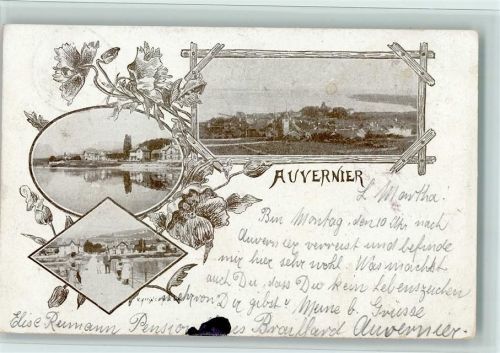 AUVERNIER
L. Martha!
Bin Montag, den 10 Uhr nach
Auvernier verreist und befinde
mir hier sehr wohl. Was machst
auch Du, dass Du kein Lebenszeichen
mehr von Dir gibst? Meine b. Grüsse
Elise Reimann Pension Braillard Auvernier.